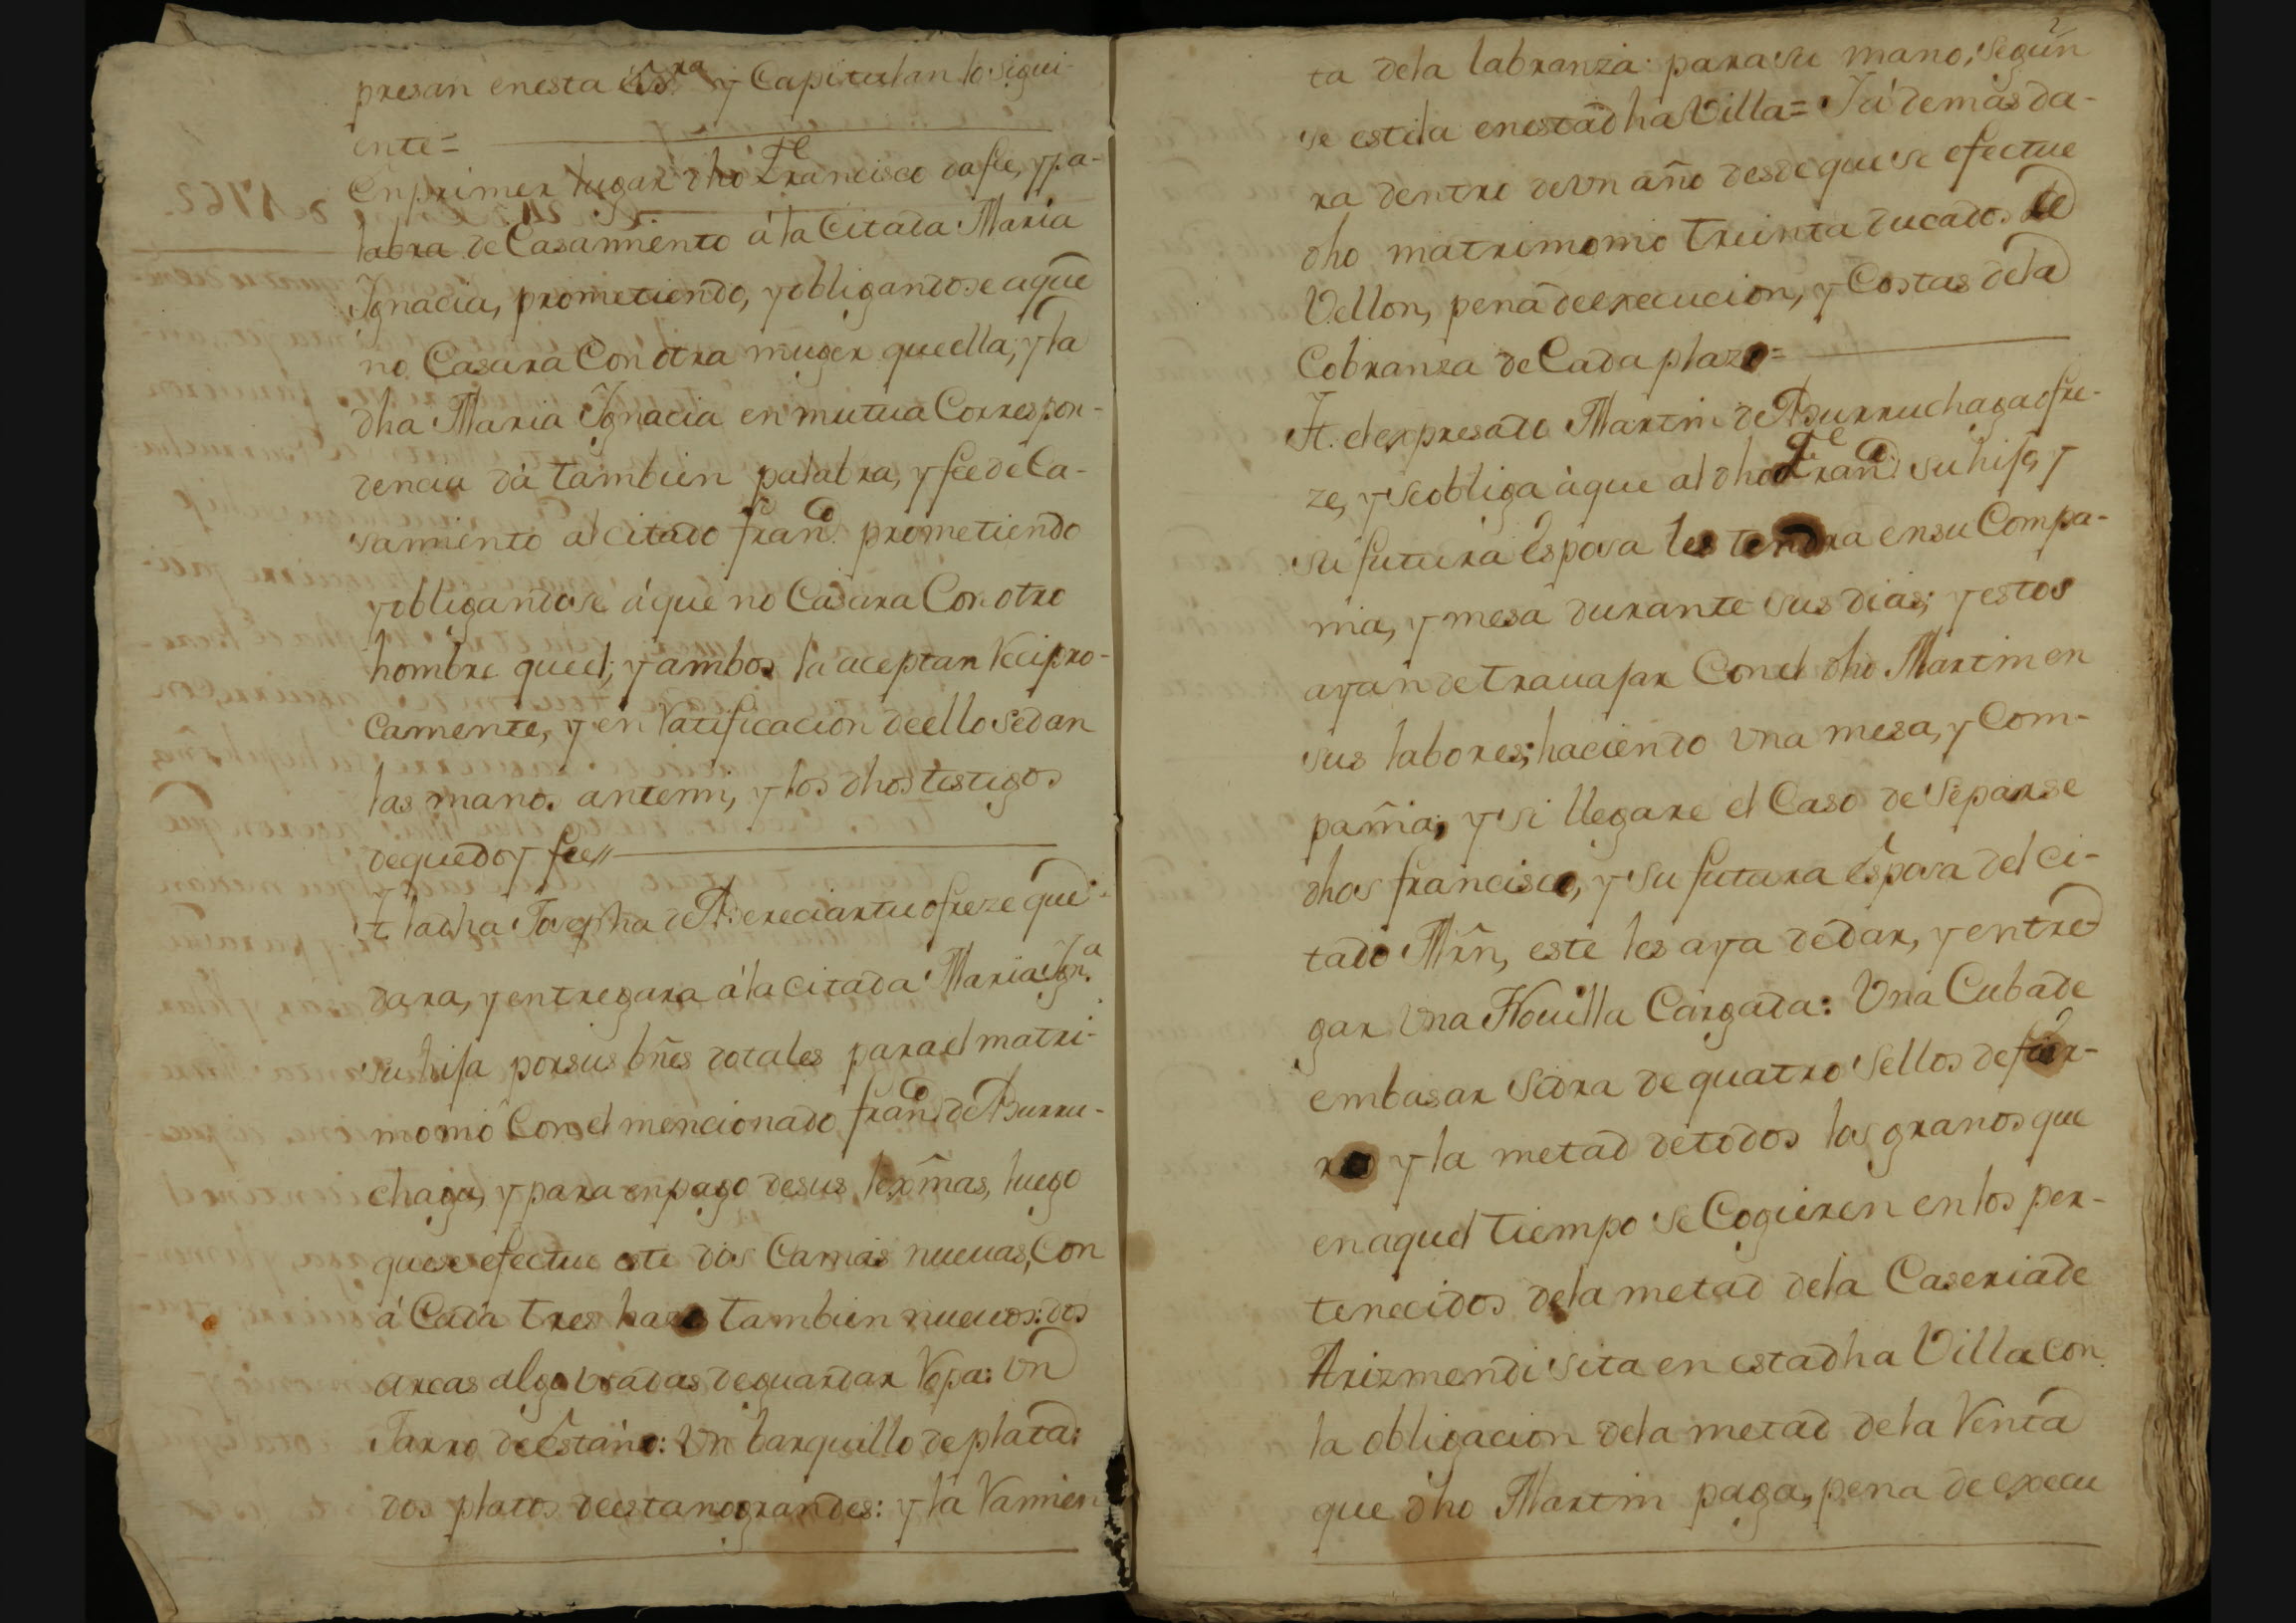 presan enesta esra y Capitulan lo sigui-
ente=
En primer lugar dho Francisco da fee, y pa-
labra de Casamiento á la Citada Maria
Ignacia, prometiendo, y obligandose aque
no Casara Con otra muger que ella; y la
dha Maria Ignacia en mutua Correspon-
dencia dà tambien palabra, y fee de Ca-
samiento al citado franco prometiendo
y obligandose áque no Casara Con otro
hombre que el; y ambos la aceptan Recipro-
camente, y en Ratificacion de ello se dan
las manos antemi, y los dhos testigos
de que doy fee//
It. la dha Josepha de Aereciartu ofreze que
dara, y entregara á la citada Maria Igna
su hija por sus bñes dotales para el matri-
monio Con el mencionado franco de Aburru-
chaga, y para en pago de sus lexmas, luego
que se efectue este dos Camas nueuas, Con
á Cada tres hazes tambien nueuos: dos
arcas algo vsadas de guardar Ropa: vn
Jarro de estaño: Vn barquillo de plata:
dos platos de estano grandes: y la Vamien
2
ta dela labranza para su mano, segun
se estila enesta dha Villa= Iá demas da-
ra dentro de vn año desde que se efectue
dho matrimonio treinta ducados de
Vellon, pena de execucion, y Costas dela
Cobranza de Cada plazo=
It. el expresado Martin de Aburruchaga ofre-
ze, y se obliga àque al dho Franco su hijo, y
su futura esposa les tendra en su Compa-
nia, y mesa durante sus dias; y estos
ayan de trauajar Con el dho Martin en
sus labores; haciendo vna mesa, y Com-
pamia; y si llegare el Caso de separse
dhos francisco, y su futura esposa del ci-
tado Mrn, este les aya de dar, y entre
gar vna Nouilla Cargada: Vna Cuba de
embasar Sidra de quatro Sellos de fier-
ro y la metad de todos los granos que
en aquel tiempo se Cogieren en los per-
tenecidos dela metad dela Caseria de
Arizmendi sita en esta dha Villa con
la obligacion dela metad de la Renta
que dho Martin paga, pena de execu